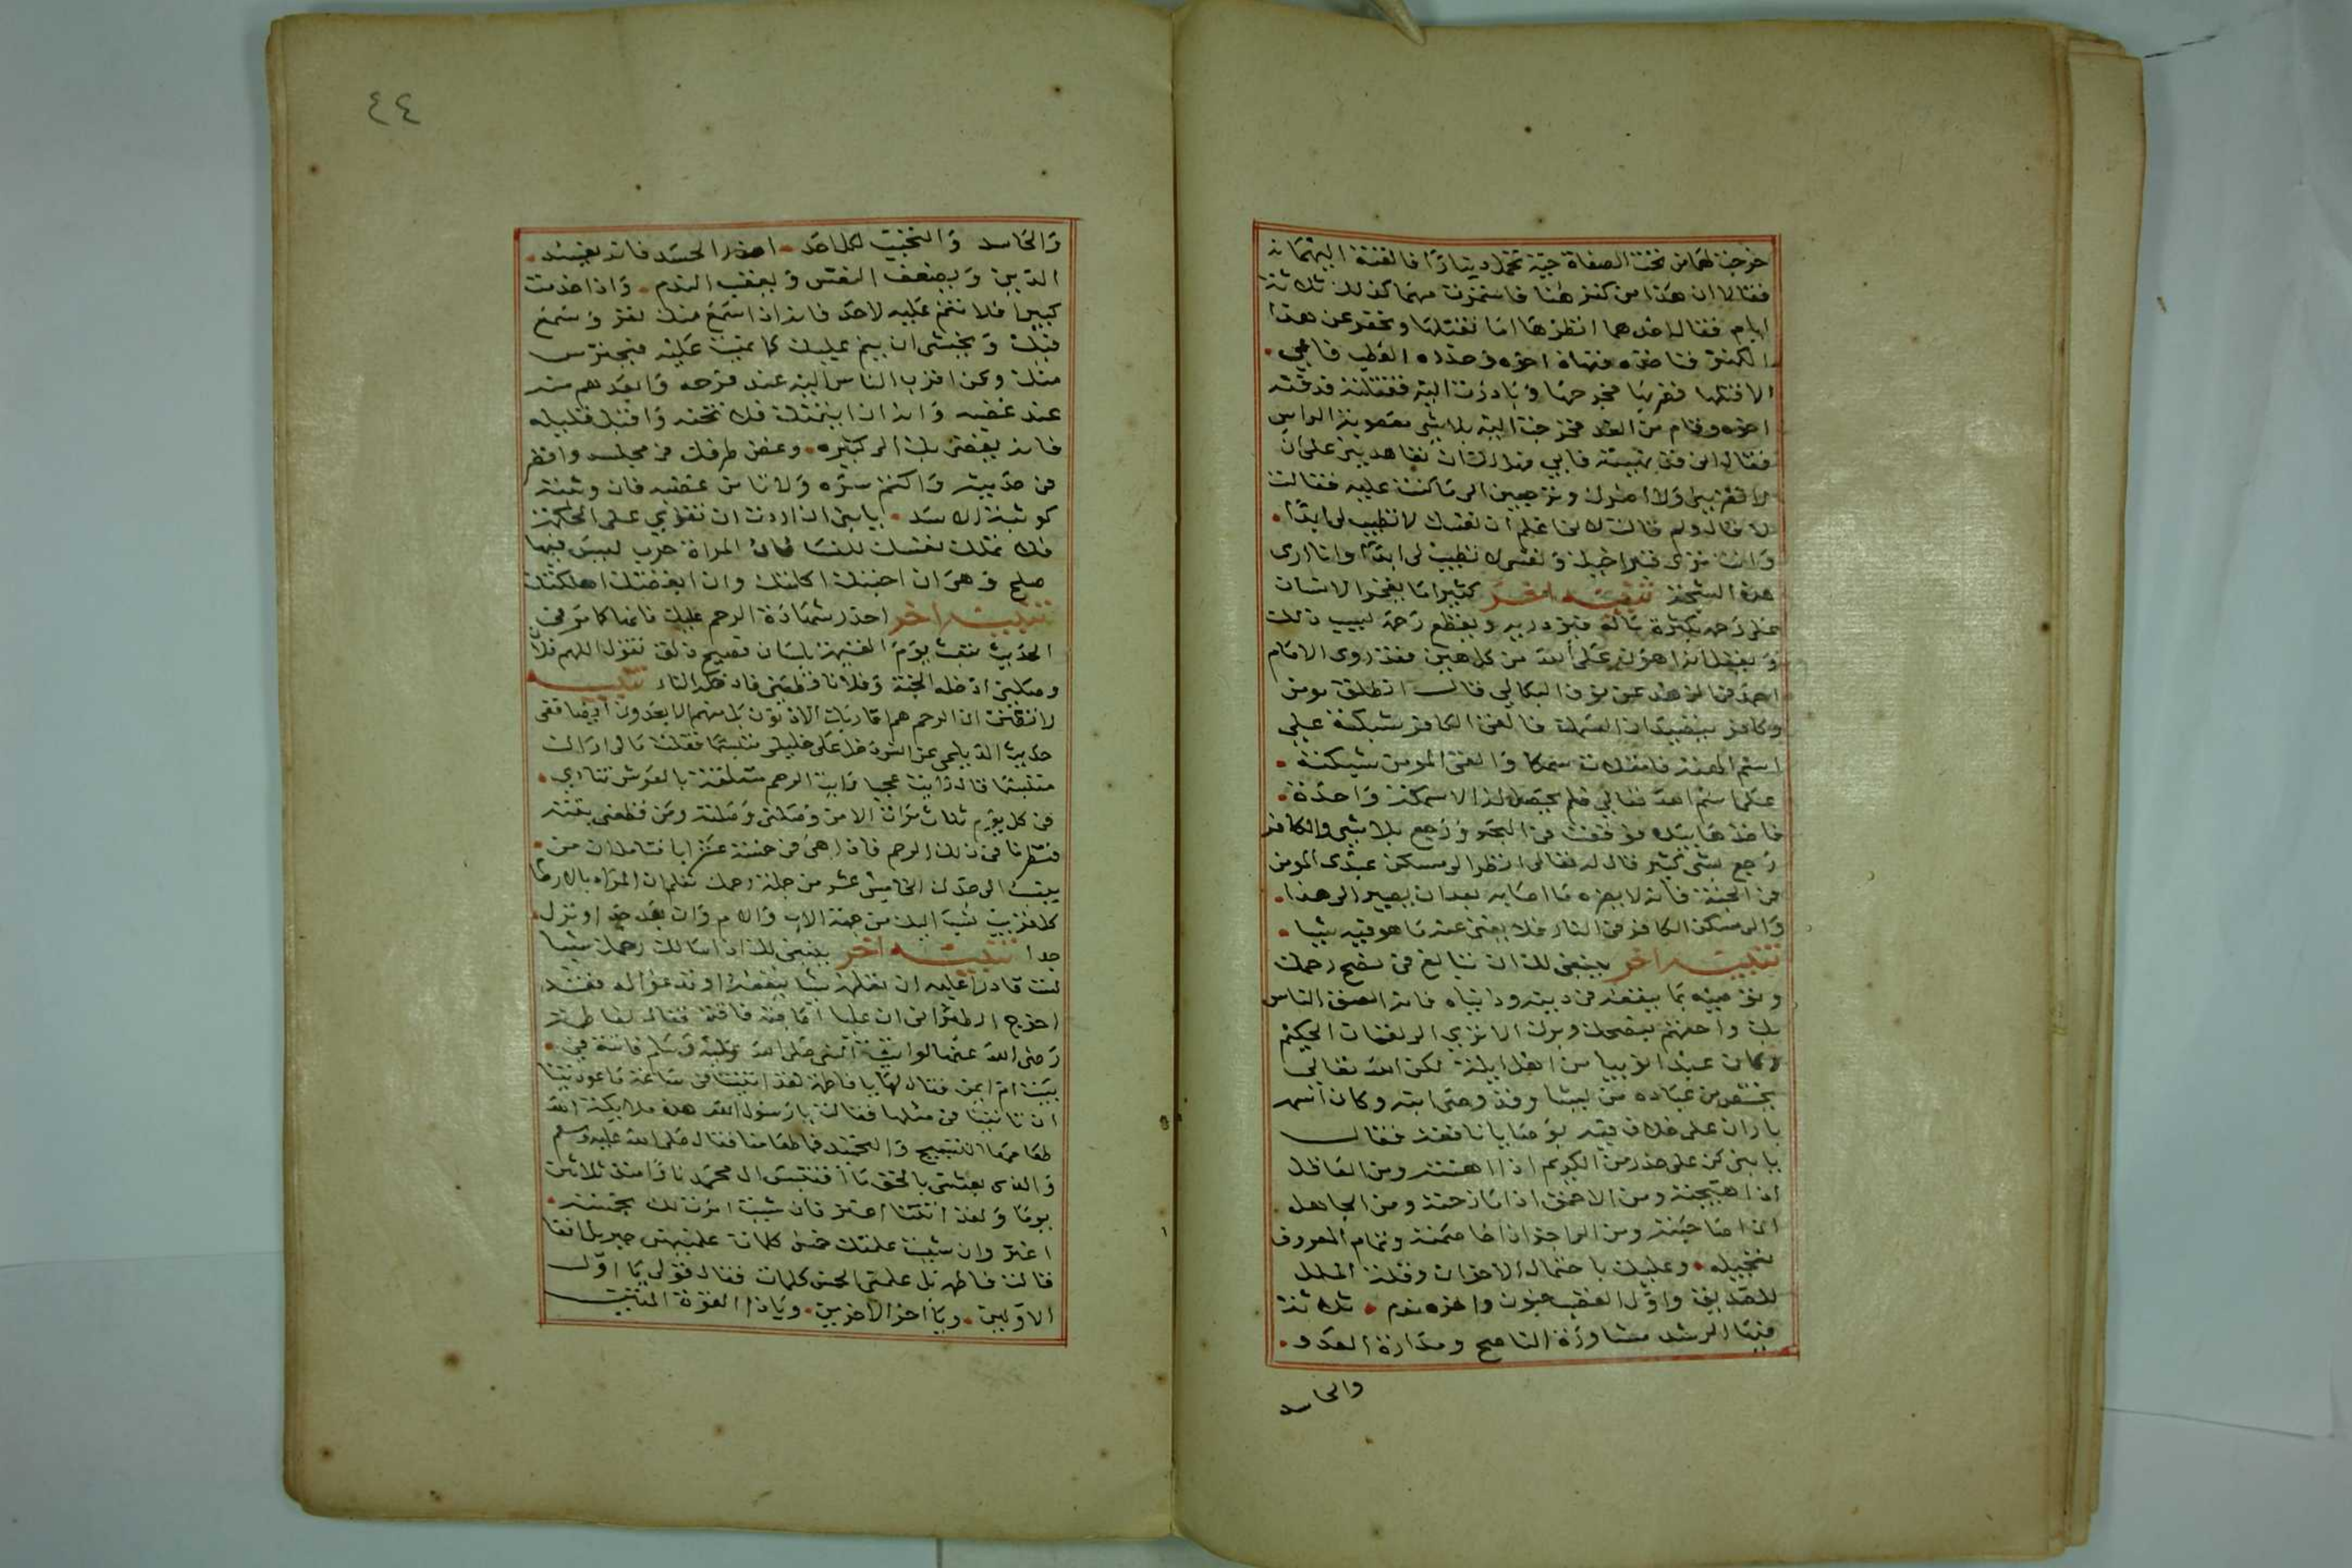 خرجت لهما من تحت الصفاة حية تحمل دينارا فالقته اليهما
فقالا ان هذا من كنز هنا فاستمرت مهما كذلك ثلاثة
ايام فقال احدهما انظرها اما نقتلها ونحفر عن هذا
الكنز فناه اخوه وحذره العطب فابى
الا قتلها فجرحها وبادرت اليه فقتلته فدفنه
اخوه وقام من الغد فخرجت اليه معصوبة الراس
فقال ان تعاهديني على ان
لا تضريني ولا اضرك وترجعين الى ما كنت عليه فقالت
لا قال ولم قالت لاني اعلم ان نفسك لا تطيب لي ابدا
وانت ترى قبر اخيك ونفسي لا تطيب لك ابدا وانا ارى
هذه الشجة تنبيه اخر كثيرا ما يفخر الانسان
على رحمه بكثرة ماله فيزدريه ويقطع رحمه لسبب ذلك
من كل هين فقد روى الامام
احمد في الزهد عن نوف البكالي قال انطلق مومن
وكافر يصيدان السمك فالقى الكافر شبكته على
اسم الهته فامتلات سمكا والقى المومن شبكته
على اسم الله تعالى فلم يحصل له الا سمكة واحدة
فاخذها بيده فوقعت في البحر ورجع بلا شي والكافر
رجع بشي كثير قال له تعالى انظر الى مسكن عبدي المومن
في الجنة فانه لا يضره ما اصابه بعد ان يصير الى هذا
والى مسكن الكافر في النار فلا يغني عنه ما هو فيه شيا
تنبيه اخر ينبغي لك ان تبالغ في نصح رحمك
وتوصيه بما ينفعه في دينه ودنياه فانه الصق الناس
بك واحقهم بنصحك وبرك الا ترى الى لقمان الحكيم
وكان عبدا نوبيا من اهل ايلة لكن الله تعالى
يختص من عباده من يشا وقد وصى ابنه وكان اسمه
باران على خلاف فيه بوصايا نافعة فقال
يا بني كن على حذر من الكريم اذا اهنته ومن العاقل
اذا هيجته ومن الاحمق اذا مازحته ومن الجاهل
اذا صاحبته ومن الفاجر اذا خاصمته وتمام المعروف
تعجيله وعليك باحتمال الاخوان وقلة الملل
للصديق واول الغضب جنون واخره ندم ثلاثة
فيها الرشد مشاورة الناصح ومداراة العدو
والحاسد
والحاسد والتحبب لكل احد احذر الحسد فانه يفسد
الدين ويضعف النفس ويعقب الندم واذا خدمت
كبيرا فلا تنم عليه لاحد فانه اذا سمع منك نفر وسمع
فيك ويخشى ان ينم عليك كما نميت عليه فيحترس
منك وكن اقرب الناس اليه عند فرحه وابعدهم منه
عند غضبه وانه ان ايتمنك فلا تخنه واقبل قليله
فانه يفضي بك الى كثيره وغض طرفك في مجلسه
من حديثه واكتم سره ولا تامن غضبه فان وثبته
كوثبة الاسد يا بني ان اردت ان تقوى على الحكمة
فلا تملك نفسك للنسا فان المراة حرب ليس فيها
صلح وهي ان احبتك اكلتك وان ابغضتك اهلكتك
تنبيه اخر احذر شهادة الرحم عليك فانها كما في
الحديث تبعث يوم القيمة بلسان فصيح ذلق تقول اللهم فلان
وصلني ادخله الجنة وفلانا قطعني فادخله النار تنبيه
لا تظنن ان الرحم هم اقاربك الادنون بل منهم الابعدون ايضا ففي
حديث الديلمي عن انس دخل علي خليلي متبسما فقلت ما لي اراك
متبسما قال رايت عجبا رايت الرحم متعلقة بالعرش تنادي
في كل يوم ثلاث مرات الا من وصلني وصلته ومن قطعني بتته
فنظرنا في ذلك الرحم فاذا هي في خمسة عشر ابا فتامل ان من
ينسب الى جدك الخامس عشر من جملة رحمك تعلم ان المراد بالارحام
كل قريب نسب اليك من جهة الاب والام وان بعد جدا او نزل
جدا تنبيه اخر ينبغي لك اذا سالك رحمك شيا
لست قادرا عليه ان تعلمه شيا ينفعه او تدعو له فقد
اخرج الطبراني ان عليا اصابته فاقة فقال لفاطمة
رضى الله عنهما لو اتيت النبي صلى الله عليه وسلم فاتته في
بيت ام ايمن فقال لها يا فاطمة لقد اتيتنا في ساعة ما عودتينا
ان تاتينا في مثلها فقالت يا رسول الله هذه ملايكة الله
طعامها التسبيح والتحميد فما طعامنا فقال صلى الله عليه وسلم
والذي بعثني بالحق ما اقتبس ال محمد نارا منذ ثلاثين
يوما ولقد اتتنا اعنز فان شيت امرت لك بخمسة
اعنز وان شيت علمتك خمس كلمات علمنيهن جبريل انفا
قالت فاطمة بل علمني الخمس كلمات فقال قولي يا اول
الاولين ويا اخر الاخرين ويا ذا القوة المتين
٤٤